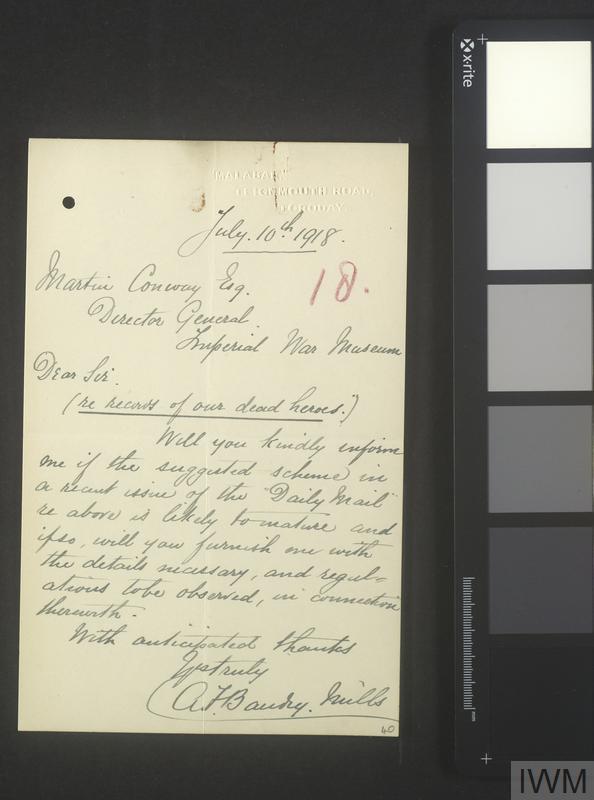 "MALABAR"
TEIGNMOUTH ROAD,
TORQUAY.
July. 10th 1918.
Martin Conway Esq.
18.
Director General
Imperial War Museum
Dear Sir.
(re records of our dead heroes".)
Will you kindly inform
me if the suggested scheme in
a recent issue of the "Daily Mail"
re above is likely to mature and
if so, will you furnish me with
the details necessary, and regul=
ations to be observed, in connection
therewith.
With anticipated thanks
Yrs truly
A.F. Baudry. Mills
40
x-rite
mm
IWM